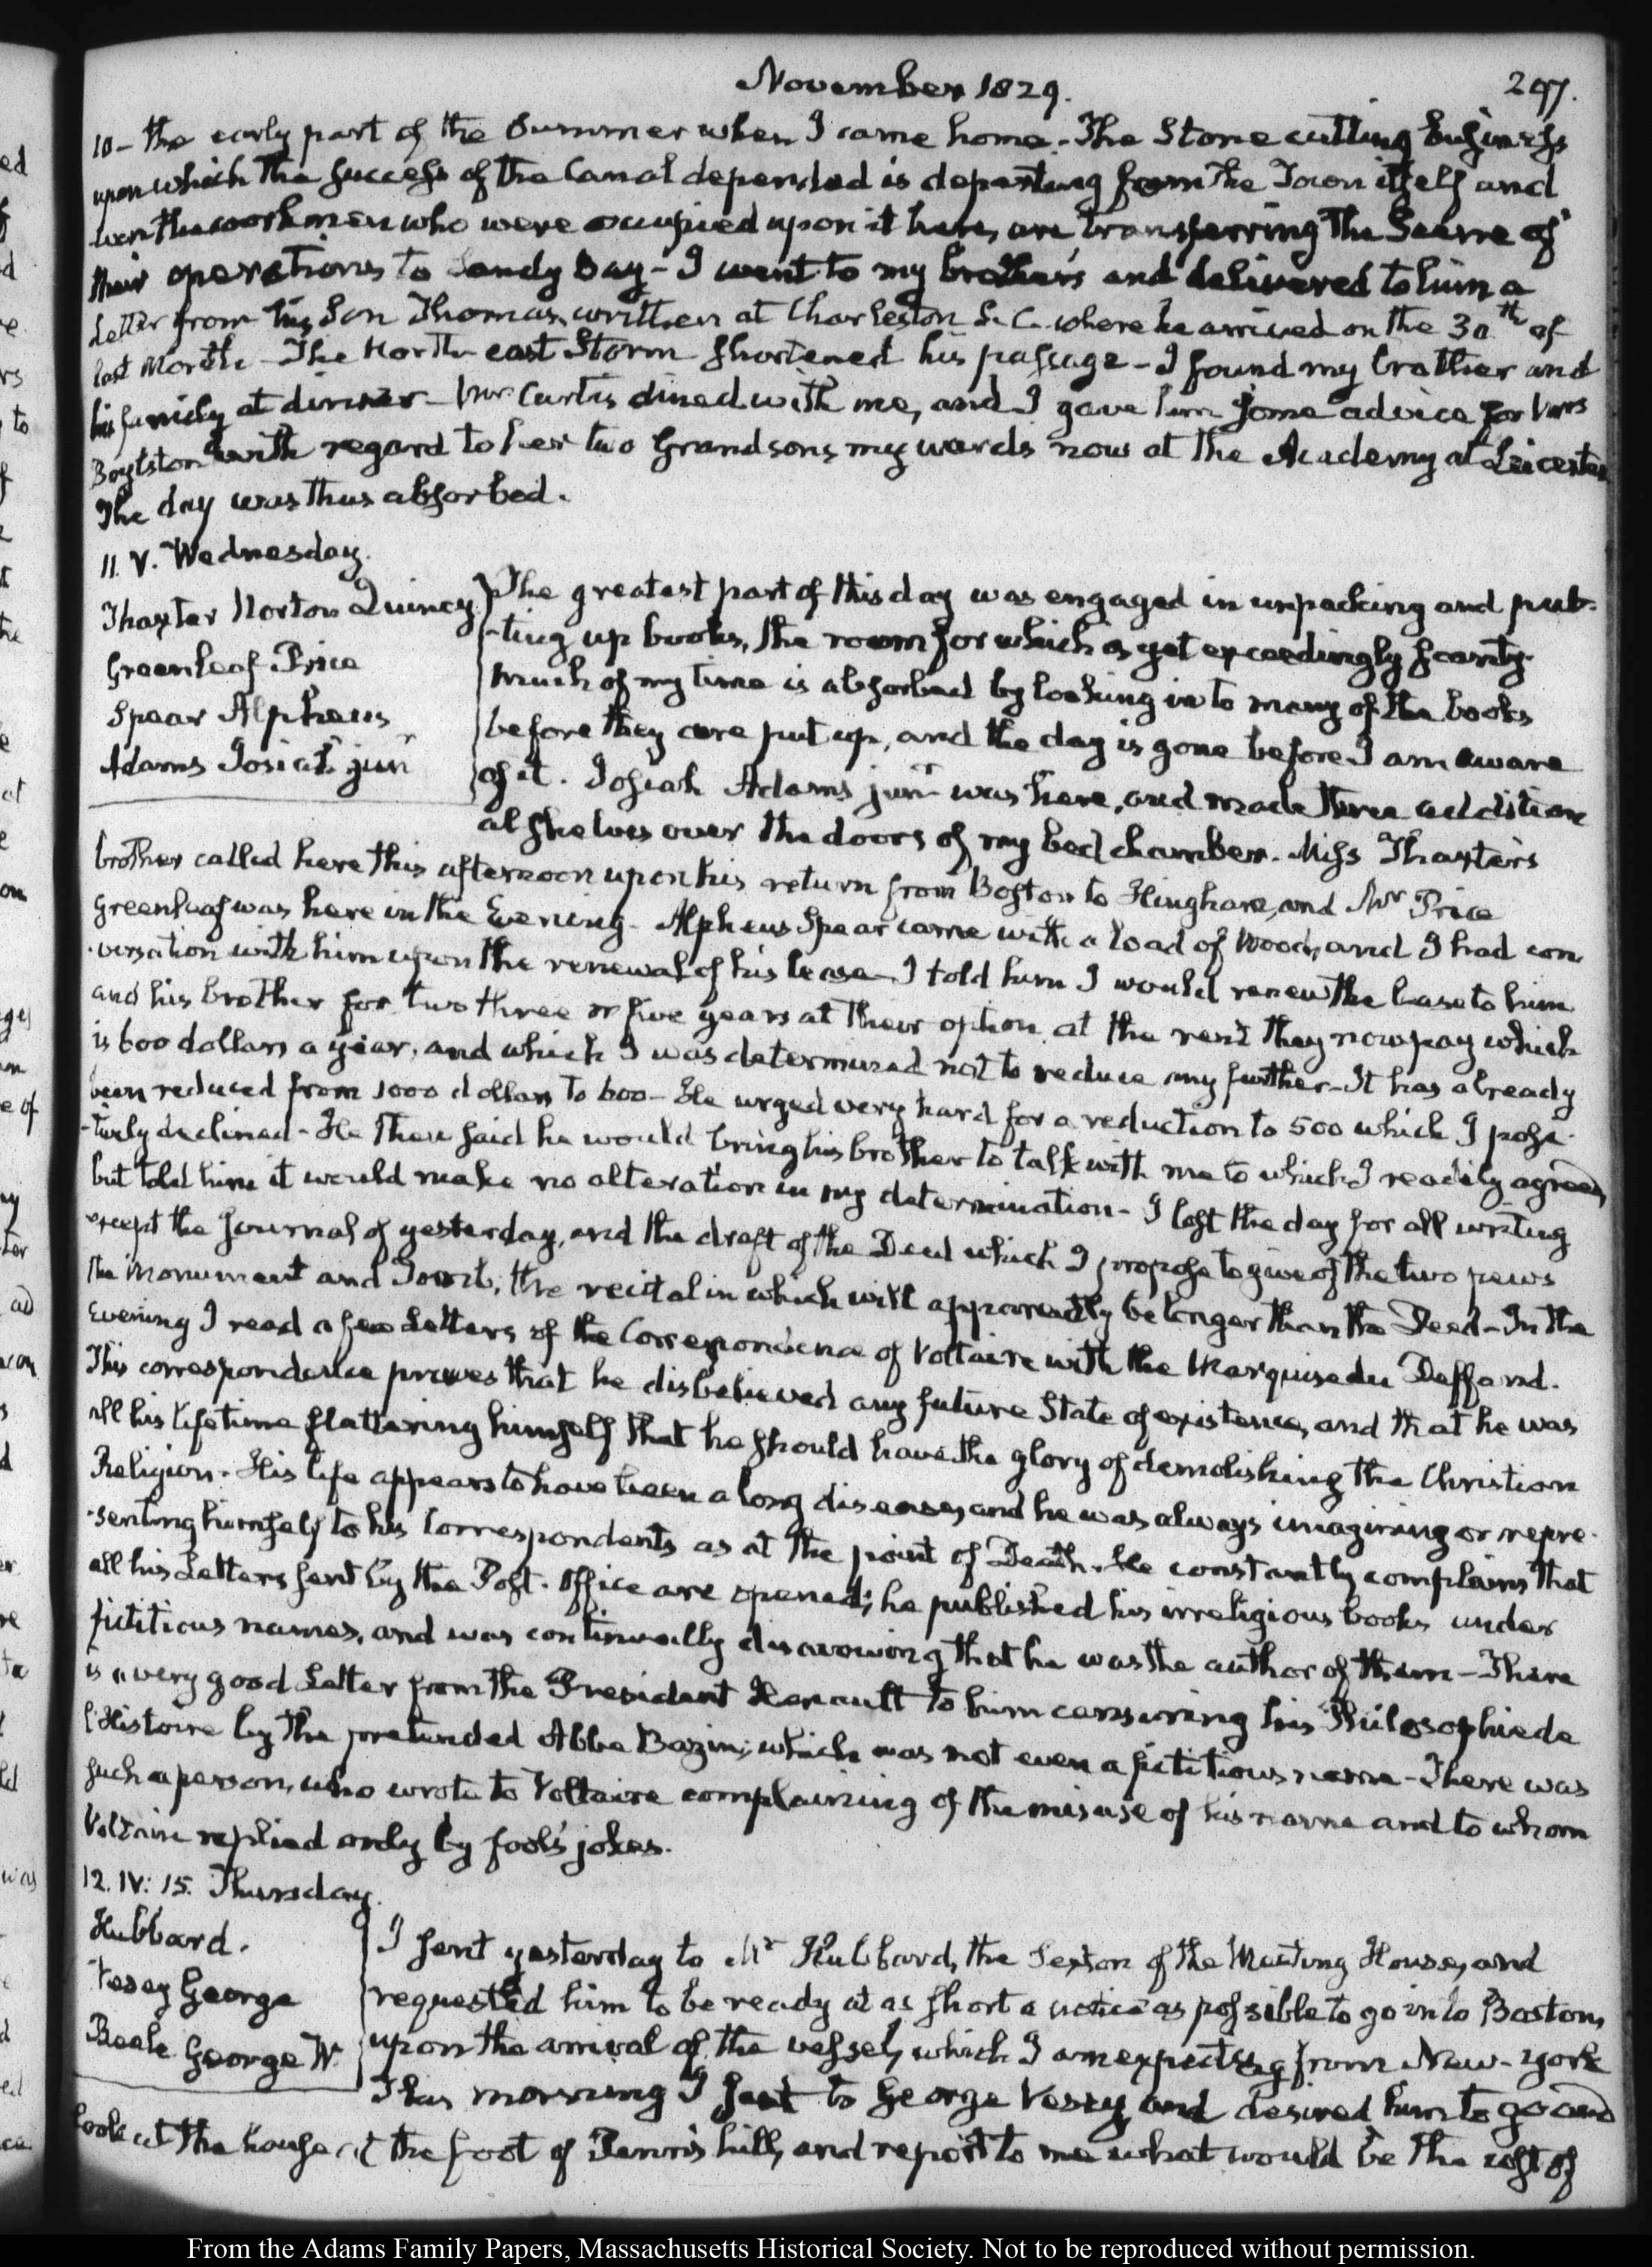 November 1829.
297.
10 – the early part of the Summer when I came home. – The Stone cutting business
upon which the success of the Canal depended is departing from the Town itself and
even the workmen who were occupied upon it here, are transferring the Scene of
their operations to Sandy Bay – I went to my brother's and delivered to him a
Letter from his Son Thomas, written at Charleston S. C. where he arrived on the 30th of
last Month – The North east Storm shortened his passage – I found my brother and
his family at dinner – Mr Curtis dined with me, and I gave him some advice for Mrs
Boylston with regard to her two Grandsons, my wards now at the Academy at Leicester
The day was thus absorbed.
11. V. Wednesday.
Thaxter Norton Quincy
Greenleaf Price
Spear Alpheus
Adams Josiah junr
The greatest part of this day was engaged in unpacking and put-
-ting up books, the room for which is yet exceedingly scanty.
Much of my time is absorbed by looking in to many of the books
before they are put up, and the day is gone before I am aware
of it. Josiah Adams junr was here, and made three addition
al shelves over the doors of my bed chamber. Miss Thaxter's
brother called here this afternoon upon his return from Boston to Hingham, and Mr Price
Greenleaf was here in the Evening – Alpheus Spear came with a load of Wood, and I had con
-versation with him upon the renewal of his lease – I told him I would renew the lease to him
and his brother for two three or five years at their option at the rent they now pay which
is 600 dollars a year, and which I was determined not to reduce any further – It has already
been reduced from 1000 dollars to 600 – He urged very hard for a reduction to 500 which I posi-
-tively declined – He then said he would bring his brother to talk with me to which I readily agreed,
but told him it would make no alteration in my determination – I lost the day for all writing
except the Journal of yesterday, and the draft of the Deed which I propose to give of the two pews
the Monument and Tomb, the recital in which will apparently be longer than the Deed – In the
Evening I read a few Letters of the Correspondence of Voltaire with the Marquise du Deffand.
This correspondence proves that he disbelieved any future State of existence, and that he was
all his lifetime flattering himself that he should have the glory of demolishing the Christian
Religion. His life appears to have been a long disease, and he was always imagining or repre-
-senting himself to his Correspondents as at the point of Death. He constantly complains that
all his Letters sent by the Post-Office are opened; he published his irreligious books under
fictitious names, and was continually disavowing that he was the author of them – There
is a very good Letter from the President Henault to him censuring his Philosophie de
l'Histoire by the pretended Abbe Bazin; which was not even a fictitious name – There was
such a person, who wrote to Voltaire complaining of the misuse of his name and to whom
Voltaire replied only by fool's jokes.
12. IV: 15. Thursday.
Hubbard.
Vesey George
Beale George W.
I sent yesterday to Mr Hubbard, the Sexton of the Meeting House, and
requested him to be ready at as short a notice as possible to go into Boston,
upon the arrival of the vessel, which I am expecting from New-York
This morning I sent to George Vesey and desired him to go and
look at the house at the foot of Penn's hill, and report to me what would be the cost of
From the Adams Family Papers, Massachusetts Historical Society. Not to be reproduced without permission.